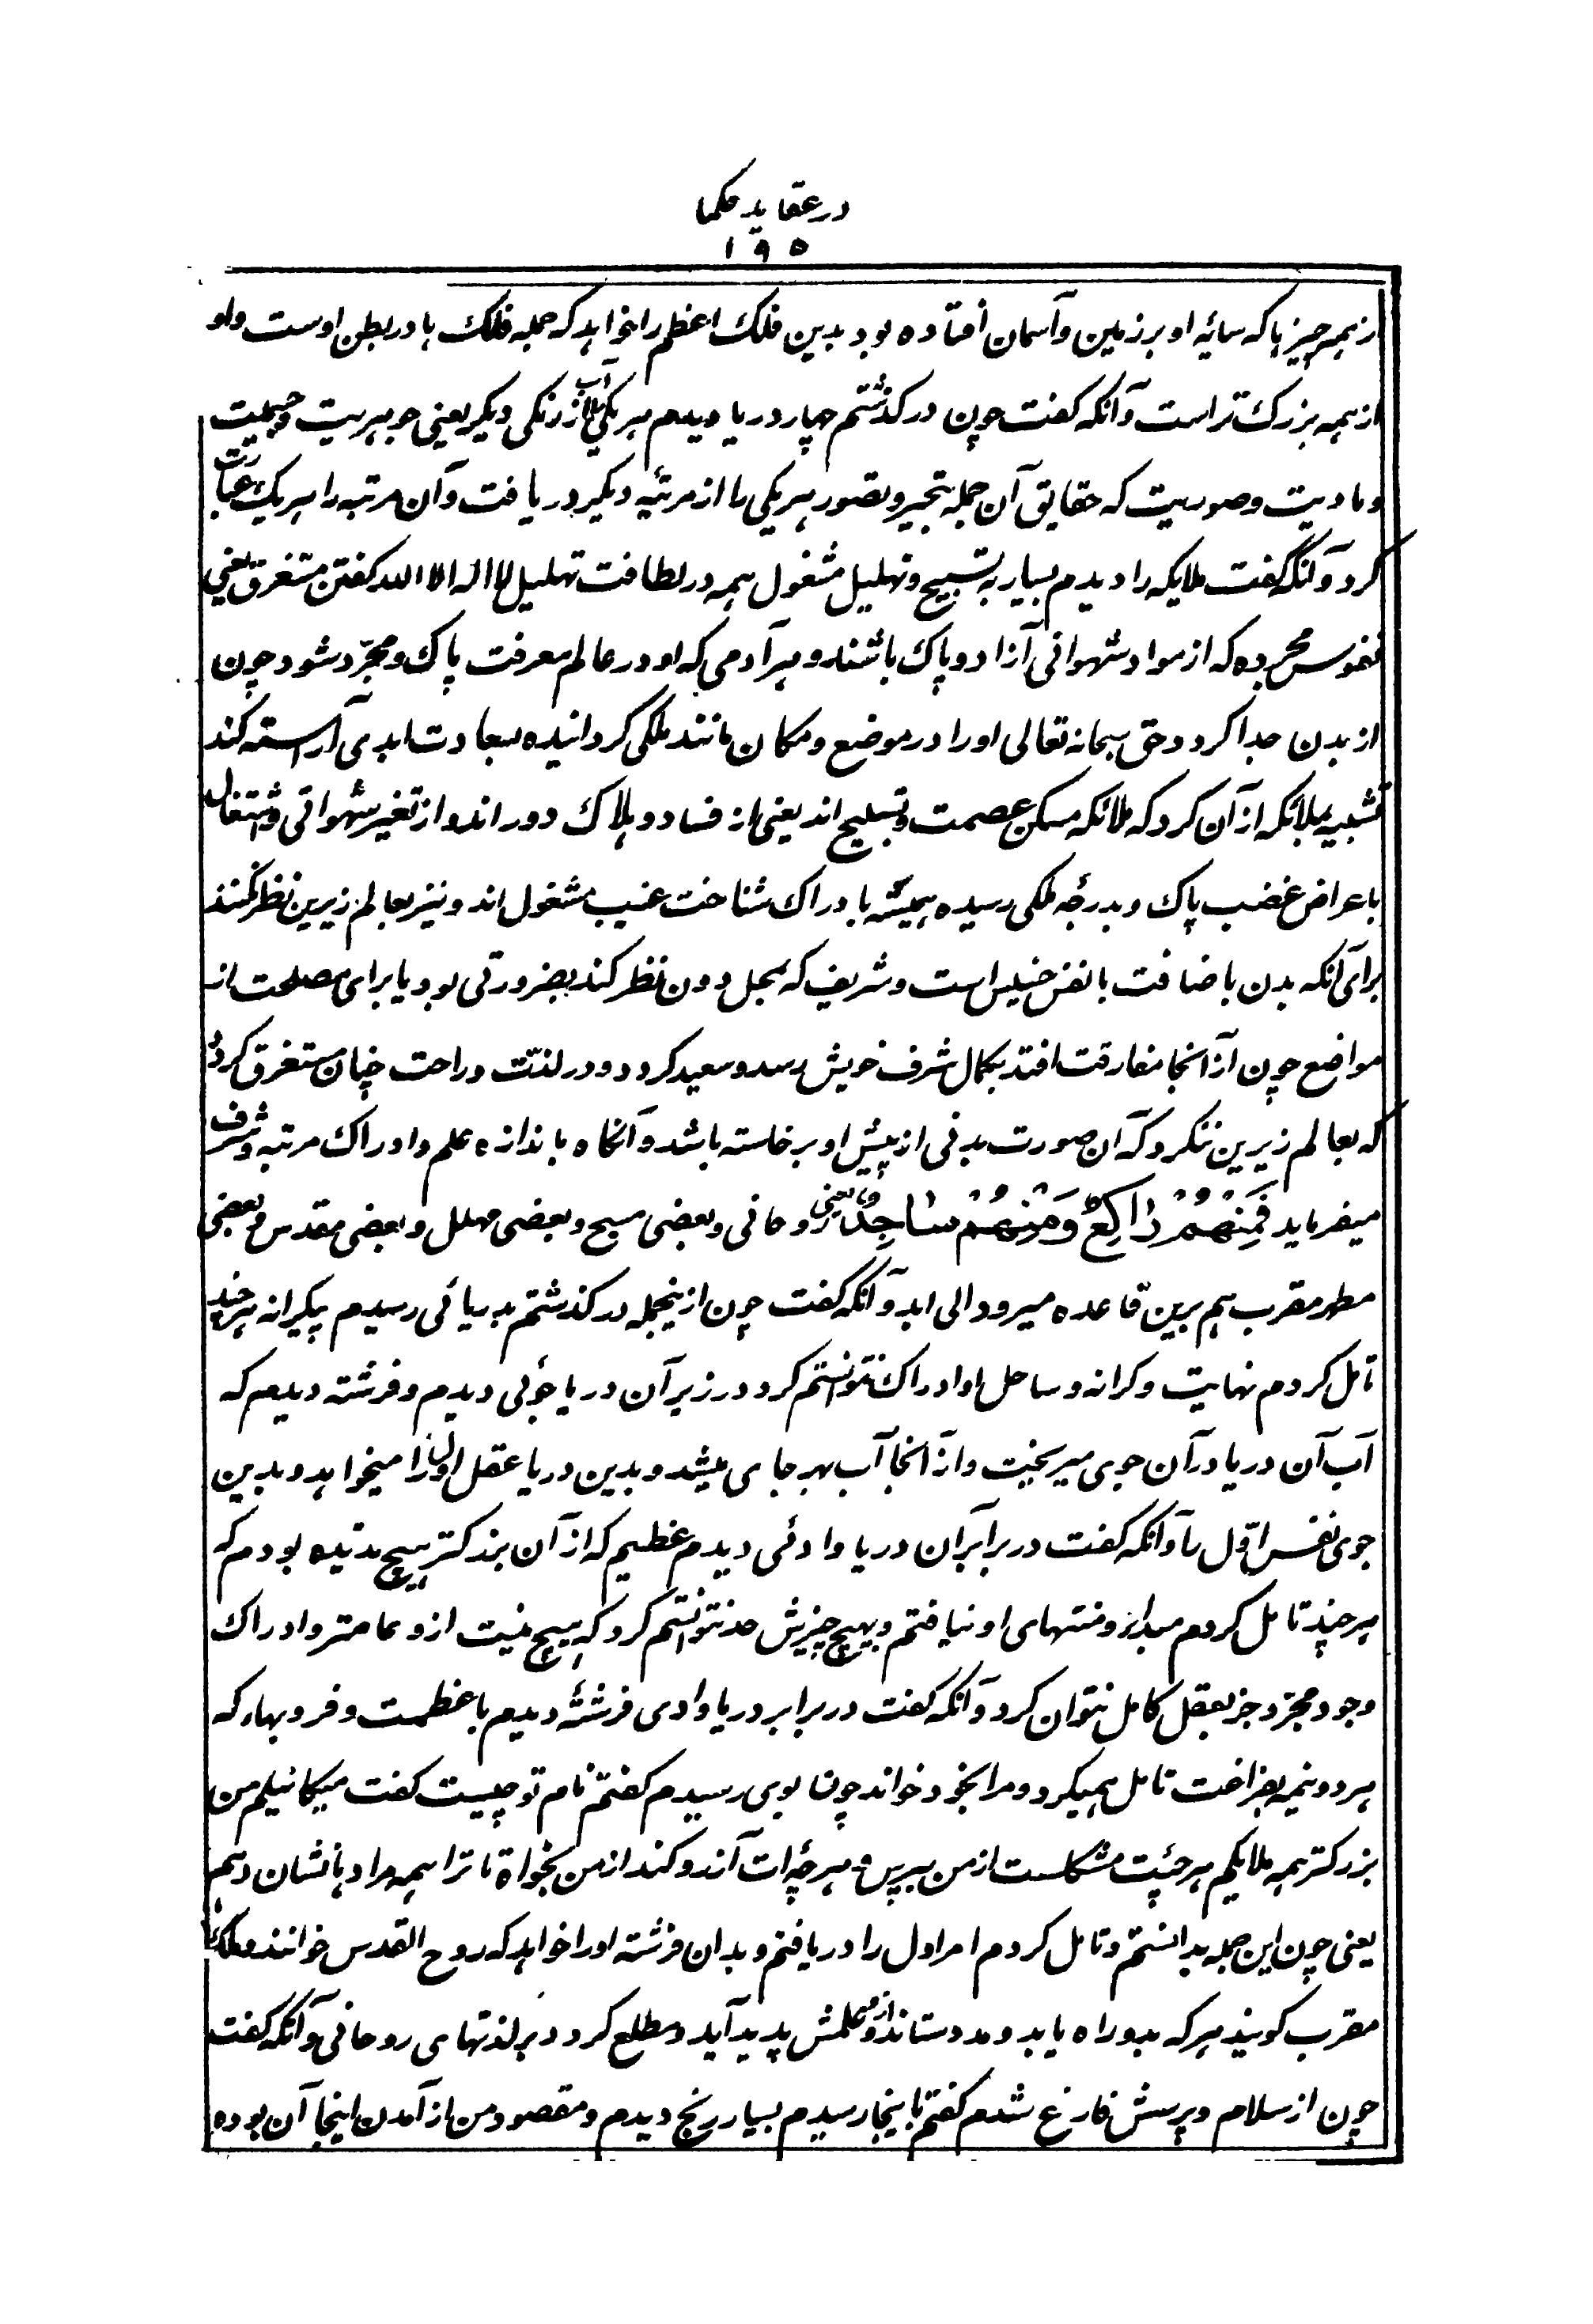 در عقاید حکما
۱۹۵
از همه چیزها که سایه او بر زمین و آسمان افتاده بود بدین فلک اعظم را خواهد که جمله فلک ها در بطن اوست و او
از همه بزرک تر است و آنکه کفت چون در کذشتم چهار دریا دیدم هر یکی را آب از رنکی دیکر یعنی جوهریت و جسمیت
و مادیت و صوریت که حقایق آن جمله تجیر و تصور هر یکی را از مرتبه دیکر دریافت و آن مرتبه را هر یک عبارت
کرد و آنکه کفت ملایکه را دیدم بسیار به تسبیح و تهلیل مشغول همه در لطافت تهلیل لا اله الا الله کفتن مستغرق یعنی
نفوس مجرده که از مواد شهوانی آزاد و پاک باشند و هر آدمی که او در عالم معرفت پاک و مجرّد شود چون
از بدن جدا کردد حق سبحانه تعالی او را در موضع و مکان مانند ملکی کردانیده بسعادت ابدی آراسته کند
تشبیه بملائکه از آن کرد که ملائکه مسکن عصمت و تسبیح اند یعنی از فساد و هلاک دور اند و از تغیر شهواتی و اشتغال
باعراض غضب پاک و بدرجه ملکی رسیده همیشه بادراک شناخت غیب مشغول اند و نیز بعالم زیرین نظر نکنند
برای آنکه بدن باضافت با نفس خسیس است و شریف که بمحل دون نظر کند بضرورتی بود یا برای مصلحت از
مواضع چون از آنجا مفارقت افتد بکمال شرف خویش رسد و سعید کردد و در لذت و راحت چنان مستغرق کردد
که بعالم زیرین ننکرد که آن صورت بدنی از پیش او برخاسته باشد و آنکاه باندازه علم و ادراک مرتبه و شرف
میفرماید فَمِنْهُمْ رَاکِعٌ وَمِنْهُمْ سَاجِدٌ یعنی روحانی و بعضی مسبح و بعضی مهلل و بعضی مقدس و بعضی
مطهر مقرب هم برین قاعده میرود الی ابد و آنکه کفت چون ازینجمله در کذشتم بدریائی رسیدم بیکرانه هر چند
تامل کردم نهایت و کرانه و ساحل او ادراک نتوانستم کرد در زیر آن دریا جوئی دیدم و فرشته دیدم که
آب آن دریا در آن جوی میریخت و از آنجا آب بهر جای میشد و بدین دریا عقل اول را میخواهد و بدین
جوی نفس اوّل را و آنکه کفت در برابر آن دریا وادئی دیدم عظیم که از آن بزرکتر هیچ ندیده بودم که
هر چند تامل کردم مبداء و منتهای او نیافتم و بهیچ چیزش حد نتوانستم کرد که هیچ نیست ازو عامتر و ادراک
وجود مجرد جز بعقل کامل نتوان کرد و آنکه کفت در برابر دریا وادی فرشتۀ دیدم با عظمت و فر و بهاء که
هر دو نیمه بفراغت تامل همیکرد و مرا بخود خواند چون بوی رسیدم کفتم نام تو چیست کفت میکائیلم من
بزرکتر همه ملایکم هر چیت مشکلست از من بپرس و هر چه ات آرزو کند از من بخواه تا ترا همه مرادها نشان دهم
یعنی چون این جمله بدانستم و تامل کردم امر اول را دریافتم و بدان فرشته او را خواهد که روح القدس خوانند و ملک
مقرب کویند هر که بدو راه یابد و مدد ستاند ازو علمش پدید آید و مطلع کردد بر لذتهای روحانی و آنکه کفت
چون از سلام و پرسش فارغ شدم کفتم تا بینجا رسیدم بسیار رنج دیدم و مقصود من از آمدن اینجا آن بوده